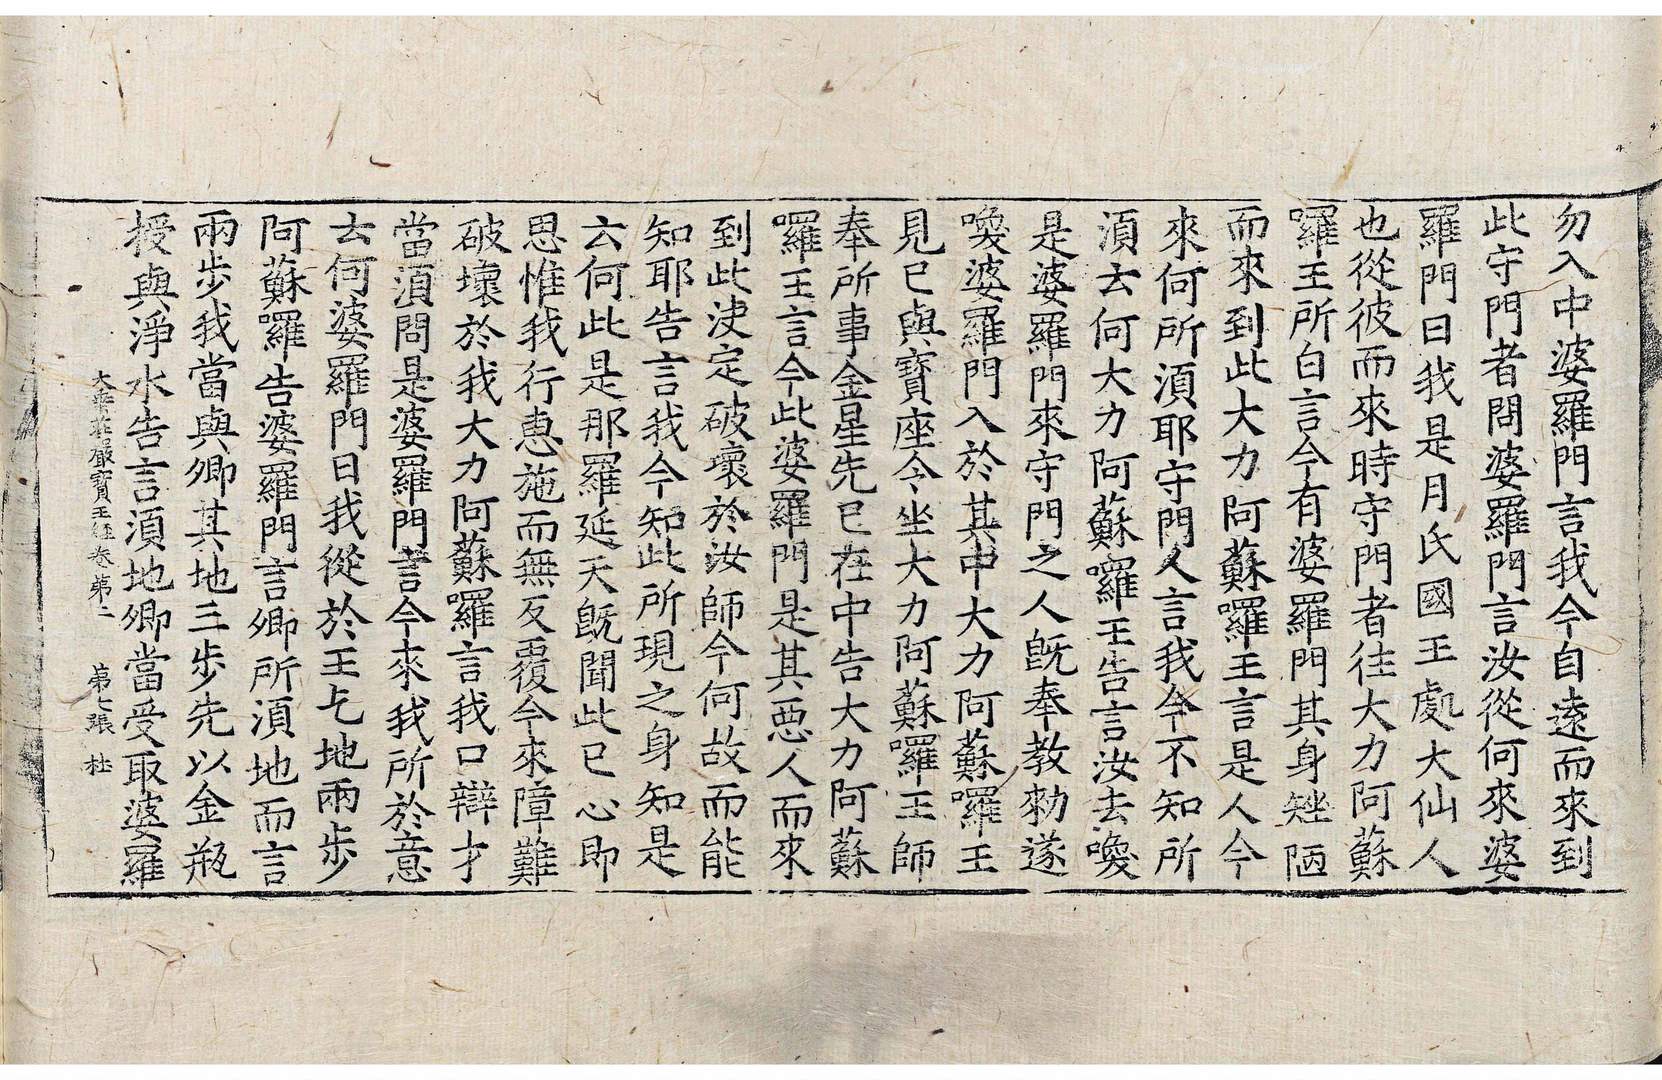 勿入中婆羅門言我今自遠而來到
此守門者問婆羅門言汝從何來婆
羅門曰我是月氏國王處大仙人
也從彼而來時守門者往大力阿蘇
囉王所白言今有婆羅門其身矬陋
而來到此大力阿蘇囉王言是人今
來何所湏耶守門人言我今不知所
湏去何大力阿蘇囉王告言汝去喚
是婆羅門來守門之人旣奉教勑遂
喚婆羅門入於其中大力阿蘇囉王
見已與寶座令坐大力阿蘇囉王師
奉所事金星先已在中告大力阿蘇
囉王言今此婆羅門是其惡人而來
到此决定破壞於汝師今何故而能
知耶告言我今知此所現之身知是
云何此是那羅延天旣聞此已心即
思惟我行惠施而無反覆今來障難
破壞於我大力阿蘇囉言我口辯才
當湏問是婆羅門言今來我所於意
云何婆羅門曰我從於王乞地兩步
阿蘇囉告婆羅門言卿所湏地而言
兩步我當與卿其地三步先以金瓶
授與淨水告言湏地卿當受取婆羅
大乘莊嚴寶王經卷第二 第七張 杜